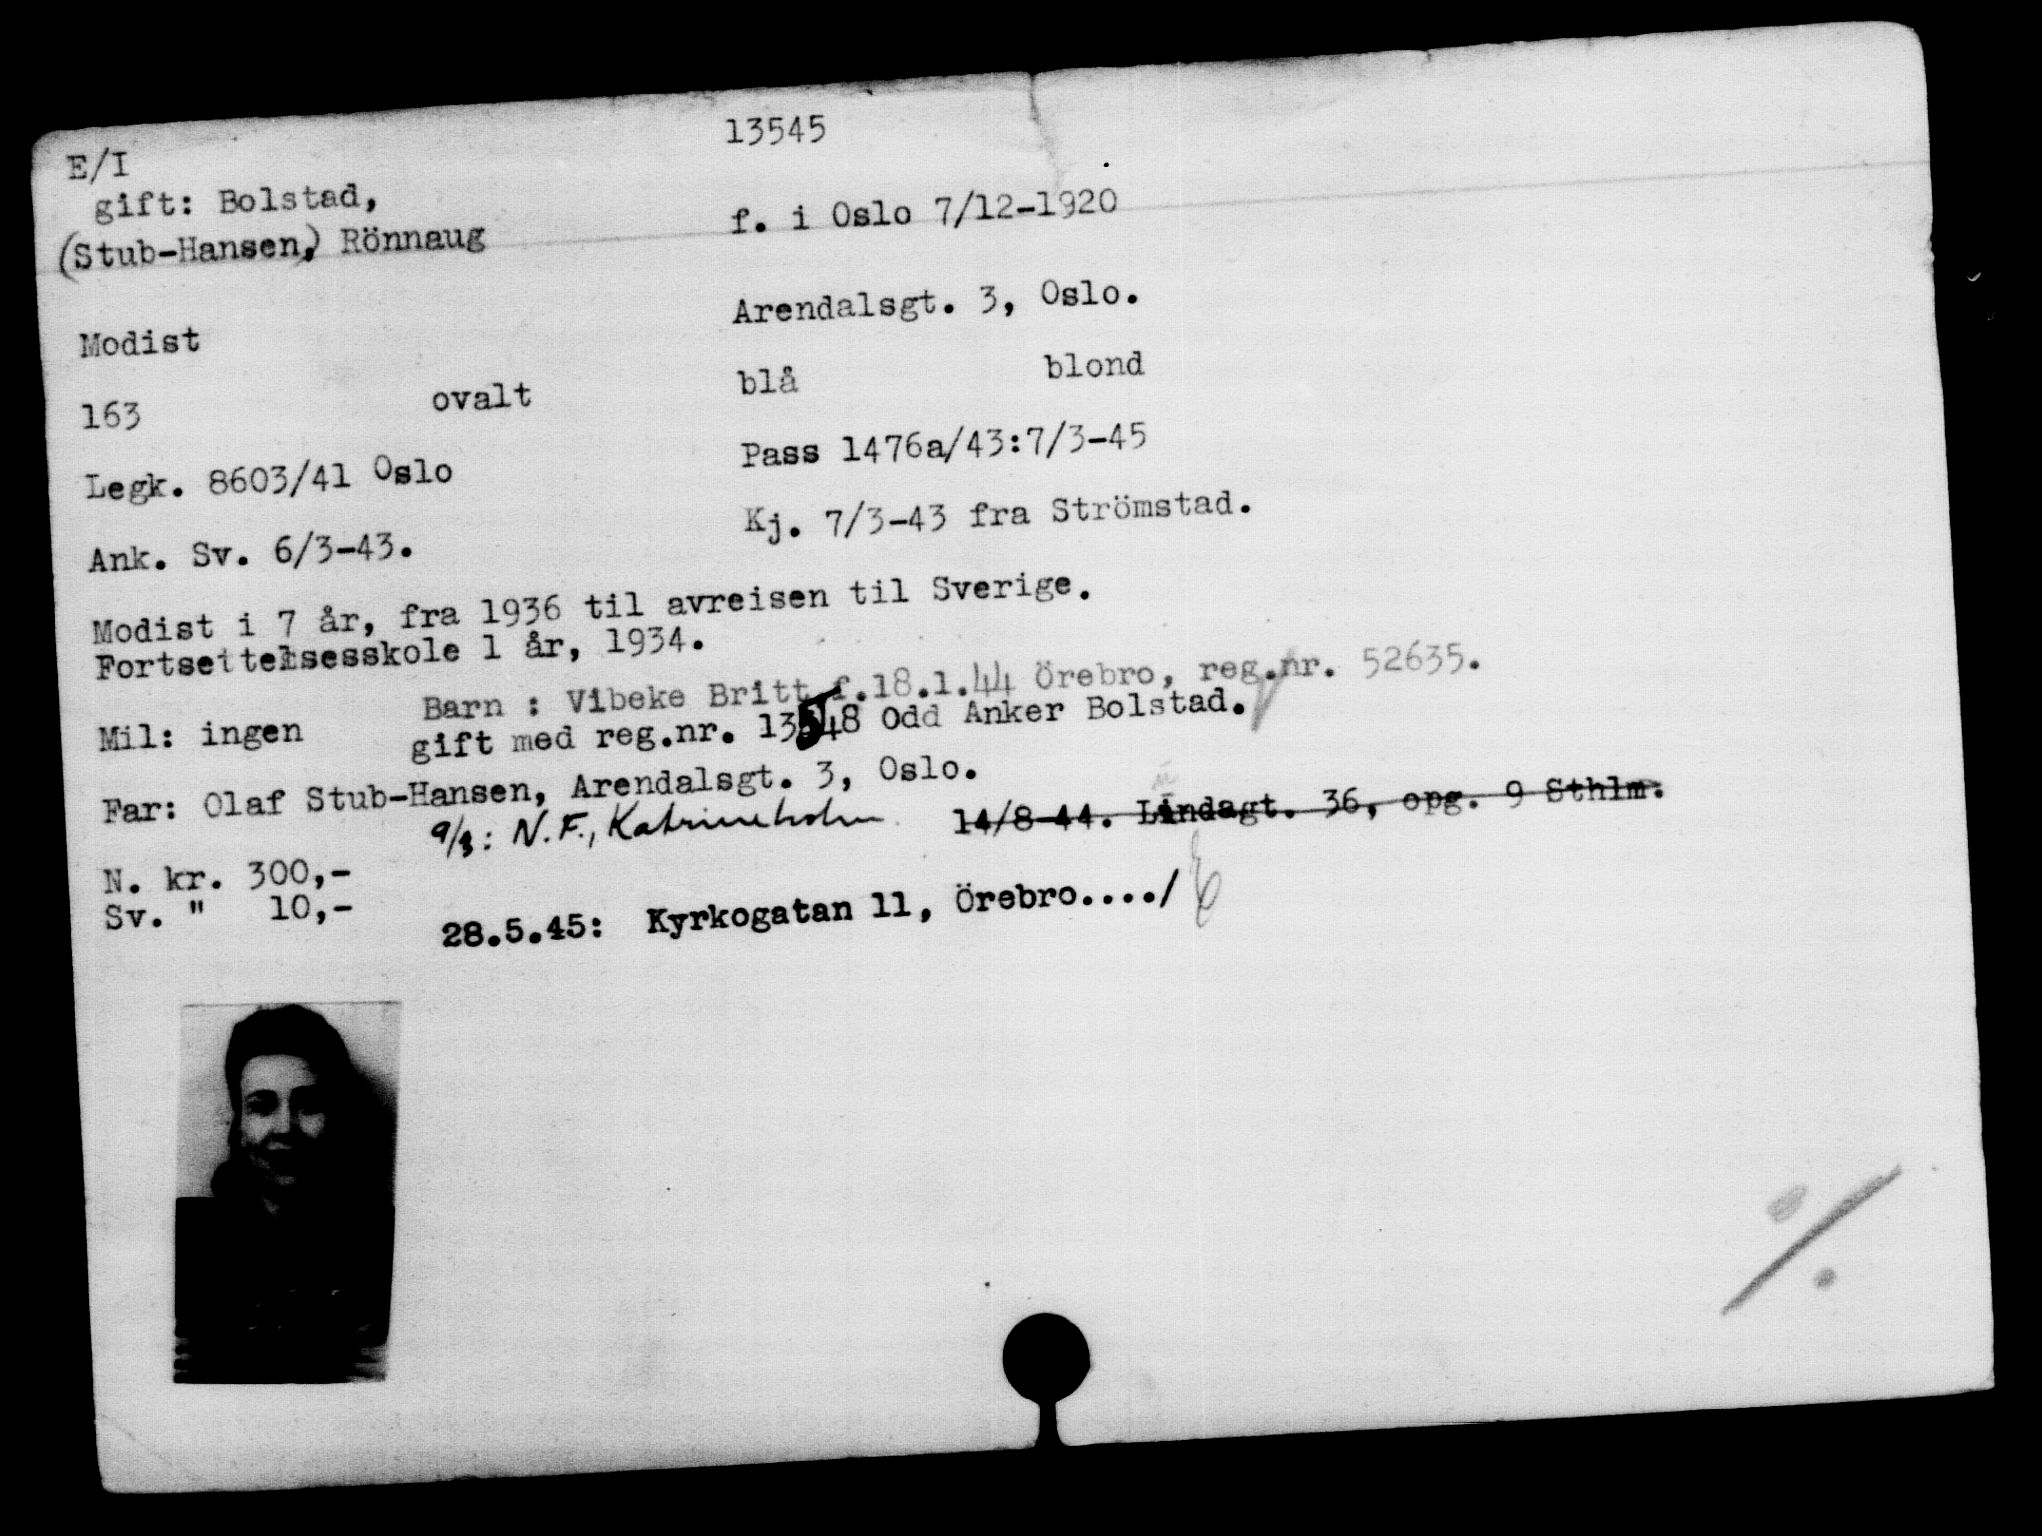 13545
E/I
gift: Bolstad,
(Stub-Hansen,) Rönnaug
f. i Oslo 7/12-1920
Modist
Arendalsgt. 3, Oslo.
163 ovalt blå blond
Legk. 8603/41 Oslo
Pass 1476a/43:7/3-45
Ank. Sv. 6/3-43.
Kj. 7/3-43 fra Strömstad.
Modist i 7 år, fra 1936 til avreisen til Sverige.
Fortsettelsesskole 1 år, 1934.
Barn : Vibeke Britt f.18.1.44 Örebro, reg.nr. 52635.
Mil: ingen
gift med reg.nr. 13548 Odd Anker Bolstad.
Far: Olaf Stub-Hansen, Arendalsgt. 3, Oslo.
9/3: N.F., Katrineholm
14/8-44. Lindagt. 36, opg. 9 Sthlm.
N. kr. 300,-
Sv. " 10,-
28.5.45: Kyrkogatan 11, Örebro..../